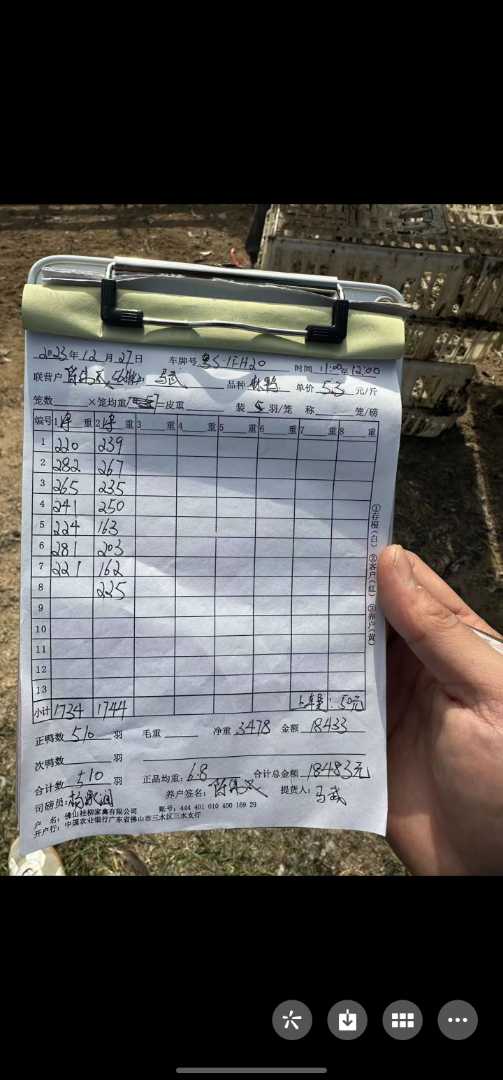 2023年12月27日 车牌号 粤S·1EH20 时间 11:00至12:00
联营户 马武 品种 单价 5.3 元/斤
笼数 ×笼均重 =皮重 装 5 羽/笼 称 笼/磅
编号 1净重 2净重 3 重 4 重 5 重 6 重 7 重 8 重
1 220 239
2 282 267
3 265 235
4 241 250
5 224 163
6 281 203
7 221 162
8 225
9
10
11
12
13
小计 1734 1744 上车费:50元
正鸭数 510 羽 毛重 净重 3478 金额 18433
次鸭数 羽
合计数 510 羽 正品均重:6.8 合计总金额 18483元
司磅员: 养户签名: 提货人:马武
户 名:佛山桂柳家禽有限公司 账号:444 401 010 400 169 29
开户行:中国农业银行广东省佛山市三水区三水支行
①存根(白)②客户(红)③养户(黄)